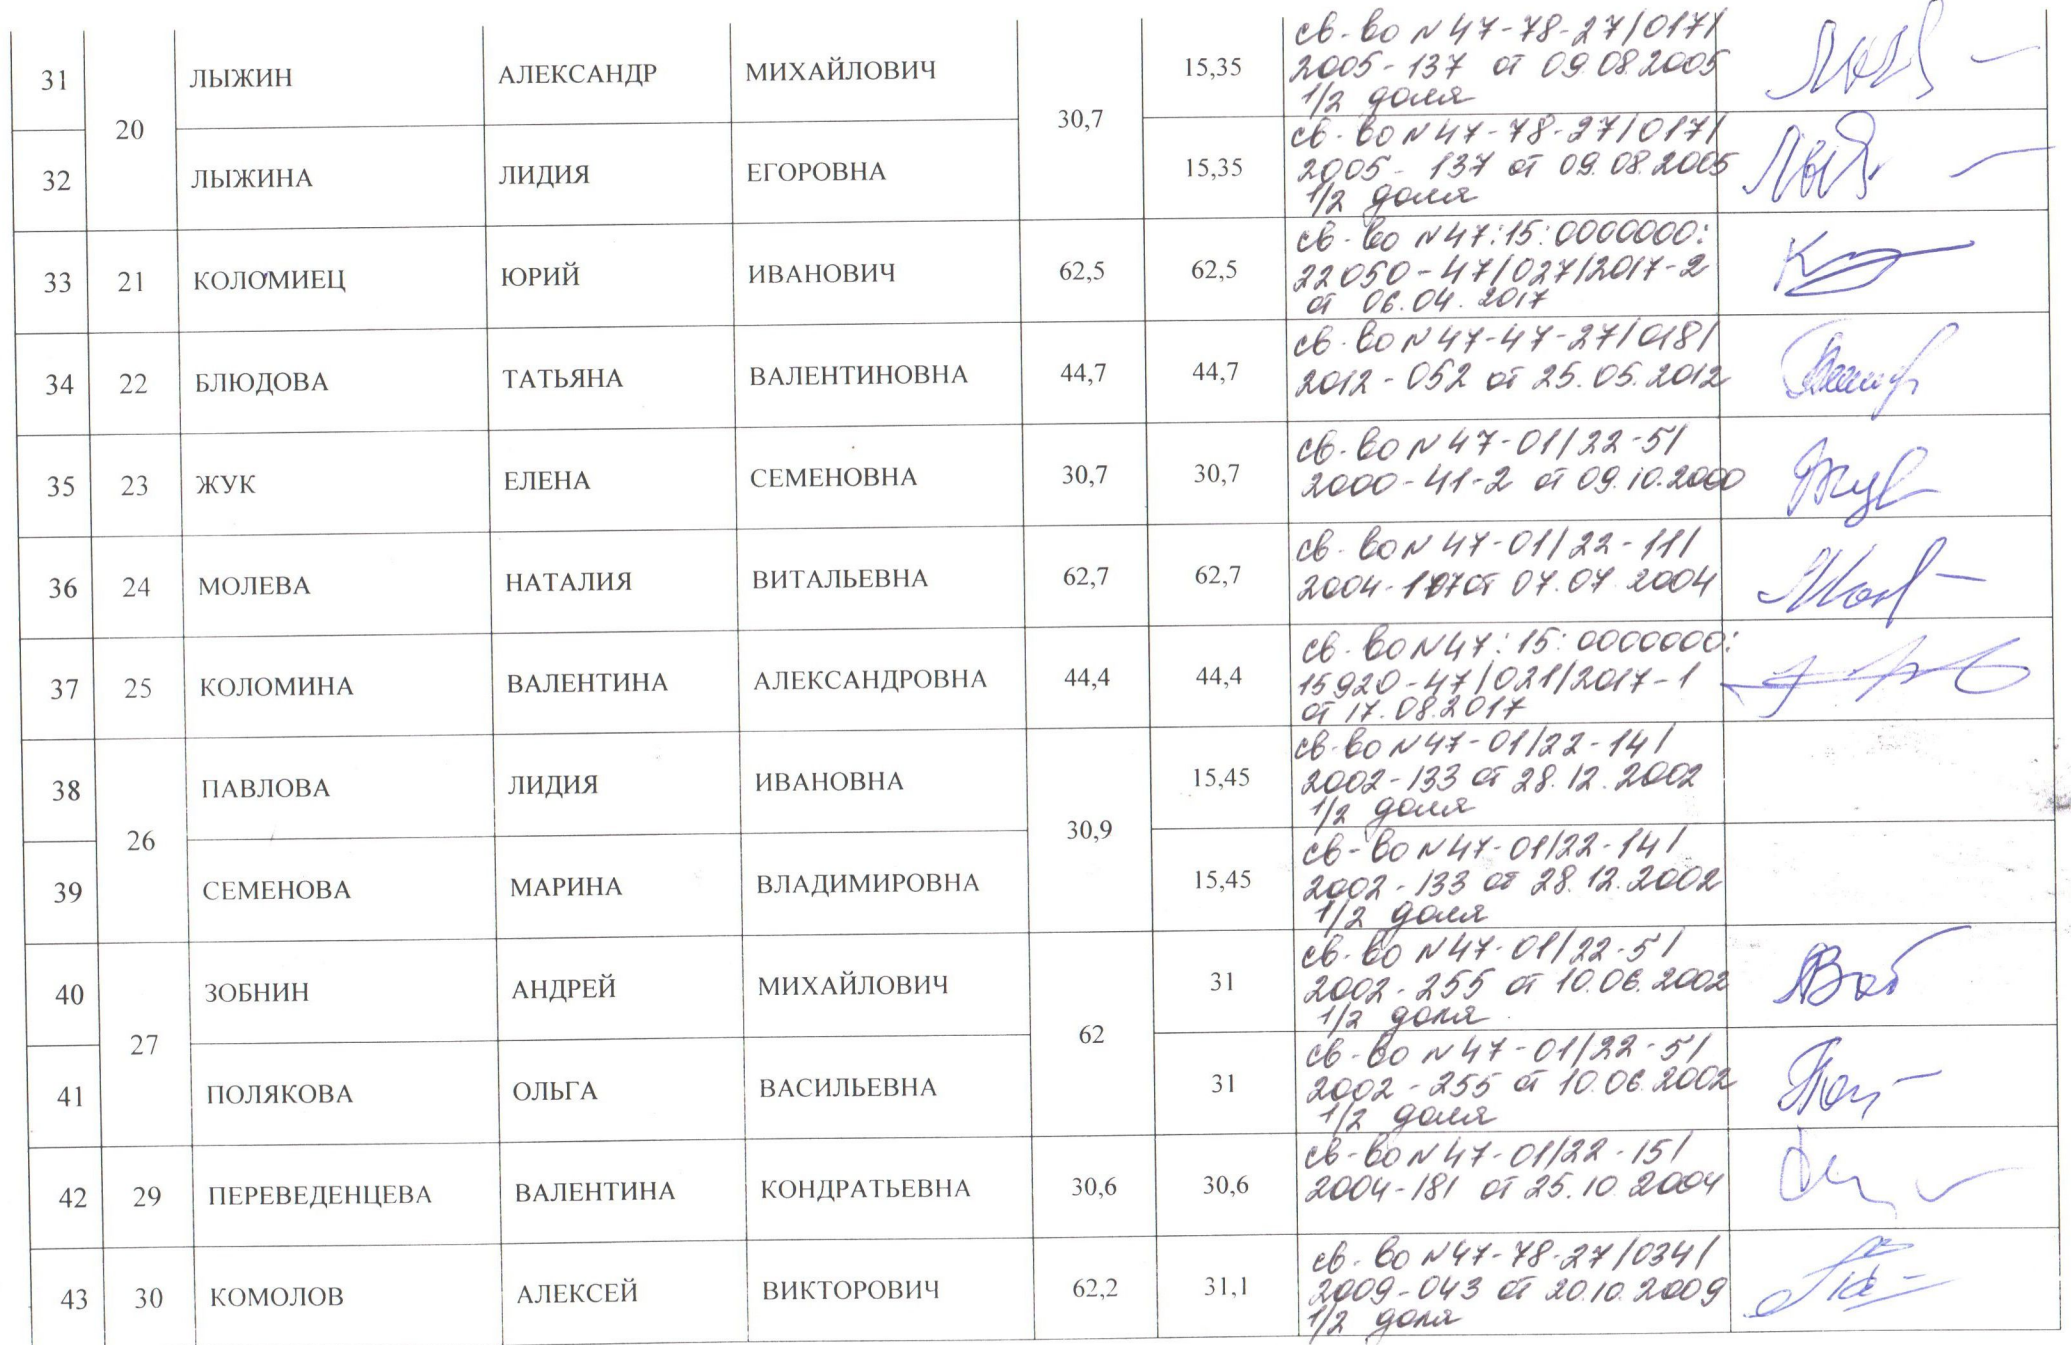 31 20 ЛЫЖИН АЛЕКСАНДР МИХАЙЛОВИЧ 30,7 15,35 св-во N47-78-27/017/
2005-137 от 09.08.2005
1/2 доля
32 ЛЫЖИНА ЛИДИЯ ЕГОРОВНА 15,35 св-во N47-78-27/017/
2005-137 от 09.08.2005
1/2 доля
33 21 КОЛОМИЕЦ ЮРИЙ ИВАНОВИЧ 62,5 62,5 св-во N47:15:0000000:
22050-47/027/2017-2
от 06.04.2017
34 22 БЛЮДОВА ТАТЬЯНА ВАЛЕНТИНОВНА 44,7 44,7 св-во N47-47-27/018/
2012-052 от 25.05.2012
35 23 ЖУК ЕЛЕНА СЕМЕНОВНА 30,7 30,7 св-во N47-01/22-5/
2000-41-2 от 09.10.2000
36 24 МОЛЕВА НАТАЛИЯ ВИТАЛЬЕВНА 62,7 62,7 св-во N47-01/22-11/
2004-107 от 07.07.2004
37 25 КОЛОМИНА ВАЛЕНТИНА АЛЕКСАНДРОВНА 44,4 44,4 св-во N47:15:0000000:
15920-47/021/2017-1
от 17.08.2017
38 26 ПАВЛОВА ЛИДИЯ ИВАНОВНА 30,9 15,45 св-во N47-01/22-14/
2002-133 от 28.12.2002
1/2 доля
39 СЕМЕНОВА МАРИНА ВЛАДИМИРОВНА 15,45 св-во N47-01/22-14/
2002-133 от 28.12.2002
1/2 доля
40 27 ЗОБНИН АНДРЕЙ МИХАЙЛОВИЧ 62 31 св-во N47-01/22-5/
2002-255 от 10.06.2002
1/2 доля
41 ПОЛЯКОВА ОЛЬГА ВАСИЛЬЕВНА 31 св-во N47-01/22-5/
2002-255 от 10.06.2002
1/2 доля
42 29 ПЕРЕВЕДЕНЦЕВА ВАЛЕНТИНА КОНДРАТЬЕВНА 30,6 30,6 св-во N47-01/22-15/
2004-181 от 25.10.2004
43 30 КОМОЛОВ АЛЕКСЕЙ ВИКТОРОВИЧ 62,2 31,1 св-во N47-78-27/034/
2009-043 от 20.10.2009
1/2 доля